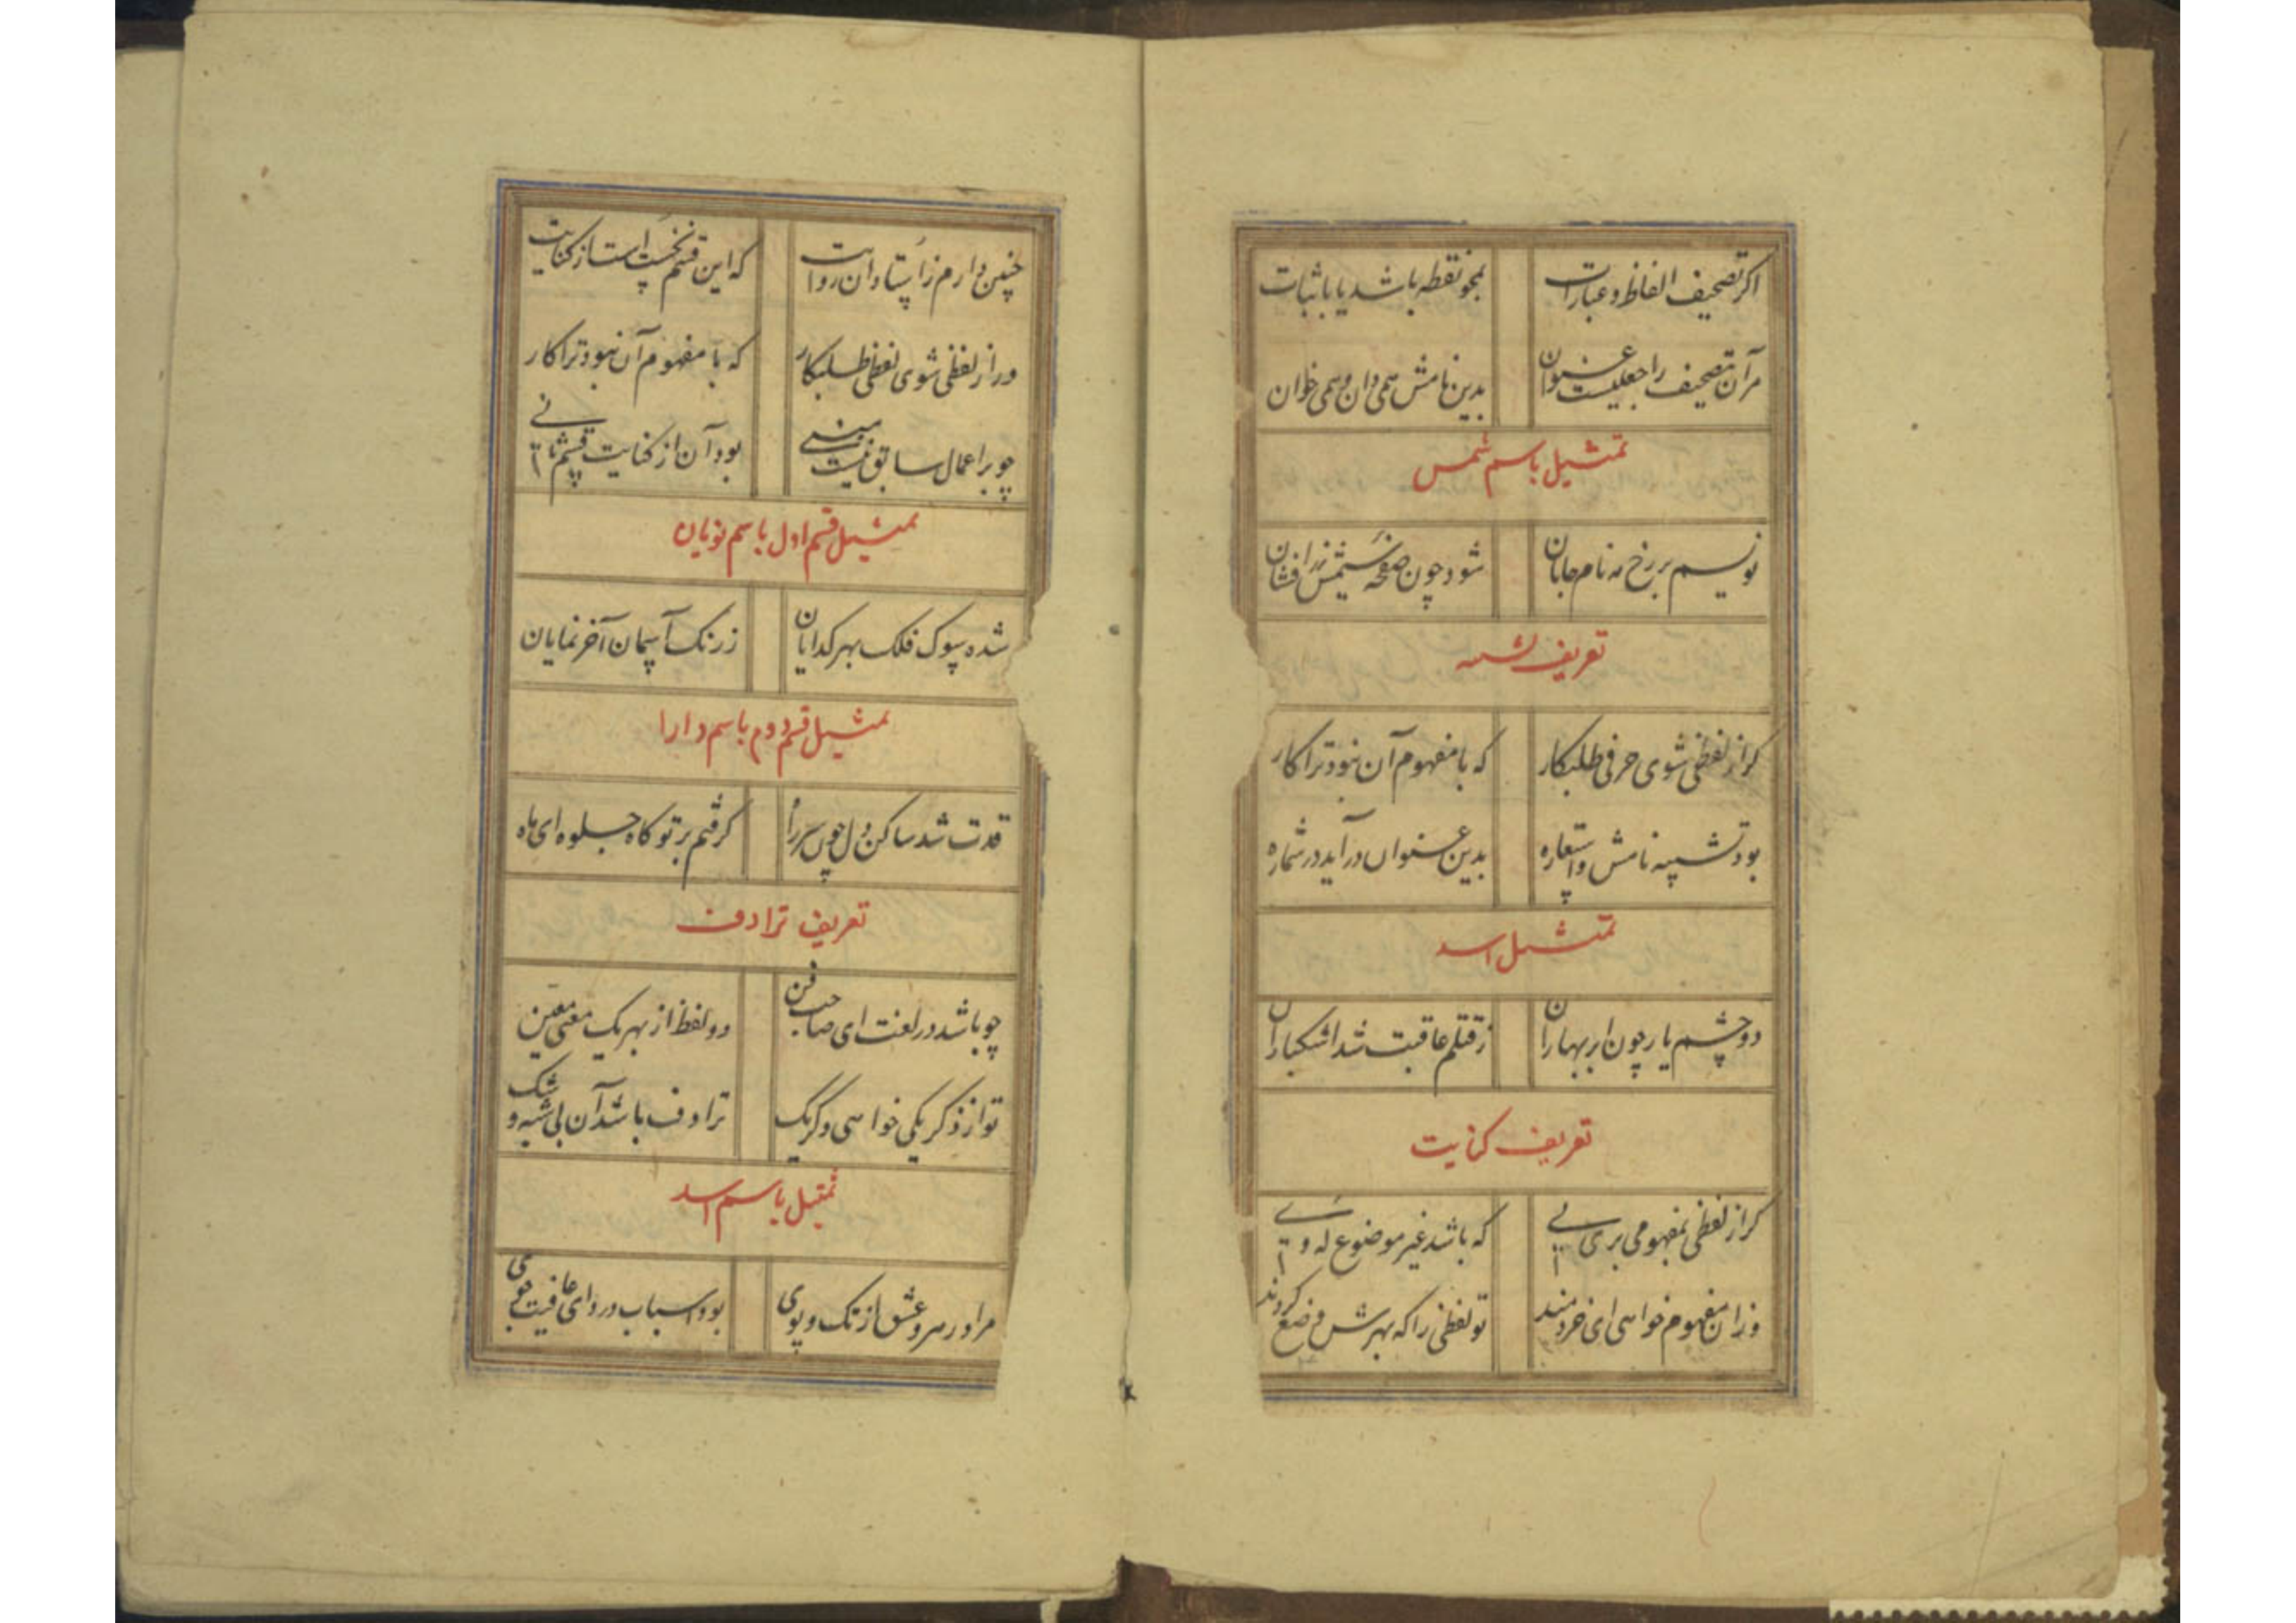 اگر تصحیف الفاظ و عبارات بمحو نقطه باشد یا باثبات
مر آن تصحیف را جعلیست عنوان بدین نامش همی دان و همی خوان
تمثیل باسم شمس
نویسم بر رخ مه نام جانان شود چون صفحه شمس افشان
تعریف تشبیه
کر از لفظی شوی حرفی طلبکار که با مفهوم آن نبود ترا کار
بود تشبیه نامش و استعاره بدین عنوان در آید در شماره
تمثیل اسد
دو چشم یار چون ابر بهاران ز قتلم عاقبت شد اشکباران
تعریف کنایت
کر از لفظی بمفهومی بری پی که باشد غیر موضوع له وی
وزان مفهوم خواهی ای خردمند تو لفظی را که بهرش وضع کردند
چنین دارم ز استادان روایت که این قسم نخست است از کنایت
ور از لفظی شوی لفظی طلبکار که با مفهوم آن نبود ترا کار
چو بر اعمال سابق نیست مبنی بود آن از کنایت قسم ثانی
تمثیل قسم اول باسم نویان
شده سوک فلک بهر کدایان ز رنک آسمان آخر نمایان
تمثیل قسم دوم باسم دارا
قدت شد ساکن دل چون سر راه کرفتم بر تو کاه جلوه ای ماه
تعریف ترادف
چو باشد در لغت ای صاحب فن دو لفظ از بهر یک معنی معین
تو از ذکر یکی خواهی دکر یک ترادف باشد آن بی شبه و شک
تمثیل باسم اسد
مرا در سر و عشق از تک و پوی بود اسباب درد ای عافیت جوی